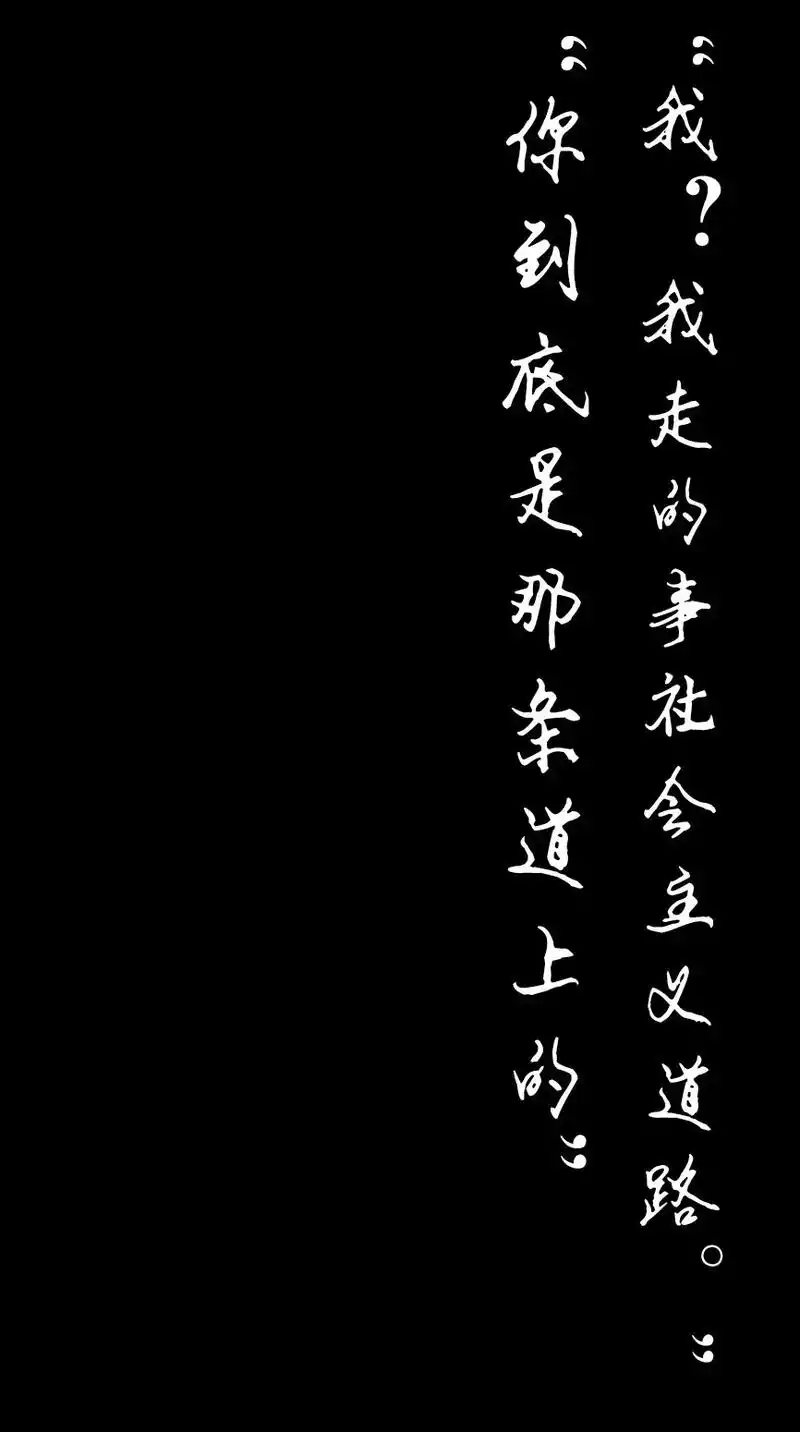 “我?我走的事社会主义道路。”
“你到底是那条道上的”